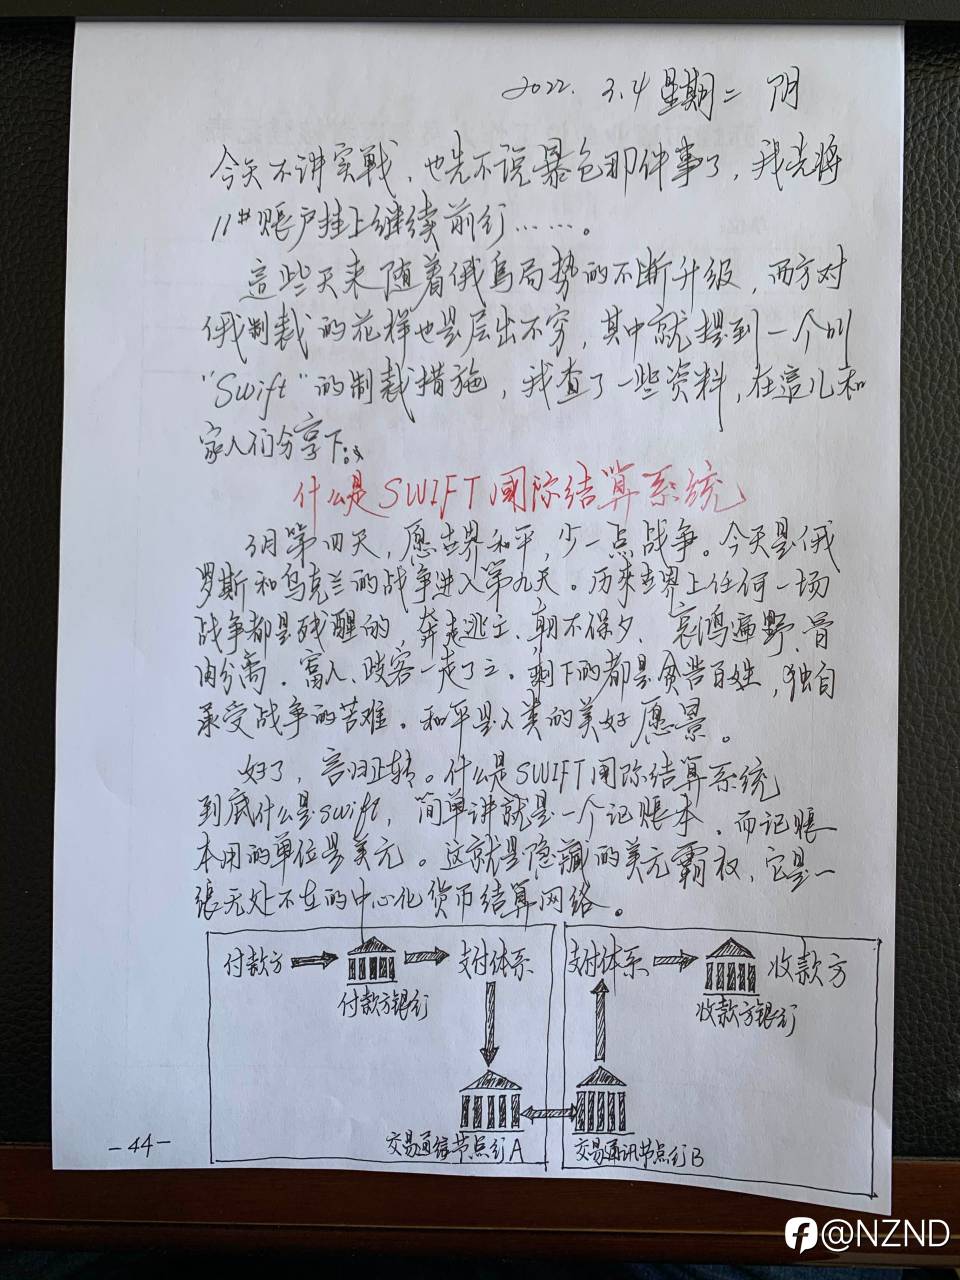 2022. 3.4 星期二 阴
今天不讲实戦，也先不说暴仓那件事了，我先将
11#账户挂上继续前行……。
這些天来随着俄乌局势的不断升级，西方对
俄制裁的花样也是层出不穷，其中就提到一个叫
"Swift"的制裁措施，我查了一些资料，在這儿和
家人们分享下：
什么是SWIFT国际结算系统
3月第四天，愿世界和平，少一点战争。今天是俄
罗斯和乌克兰的战争进入第九天。历来世界上任何一场
战争都是残酲的，奔走逃亡、朝不保夕、哀鸿遍野、骨
肉分离。富人、政客一走了之。剩下的都是贫苦百姓，独自
承受战争的苦难。和平是人类的美好愿景。
好了，言归正转。什么是SWIFT国际结算系统
到底什么是swift，简单讲就是一个记账本，而记账
本用的单位是美元。这就是隐藏的美元霸权，它是一
张无处不在的中心化货币结算网络。
付款方 支付体系 支付体系 收款方
付款方银行 收款方银行
交易通信节点行A 交易通讯节点行B
-44-
@NZND